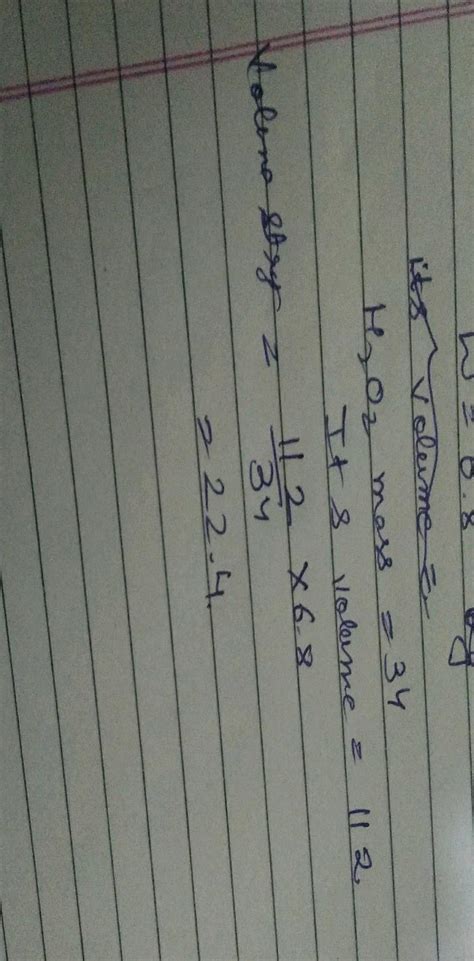 W = 6.8 
its volume =
H2O2 mass = 34
Its volume = 112
Volume stxy = 112/34 × 6.8
= 22.4